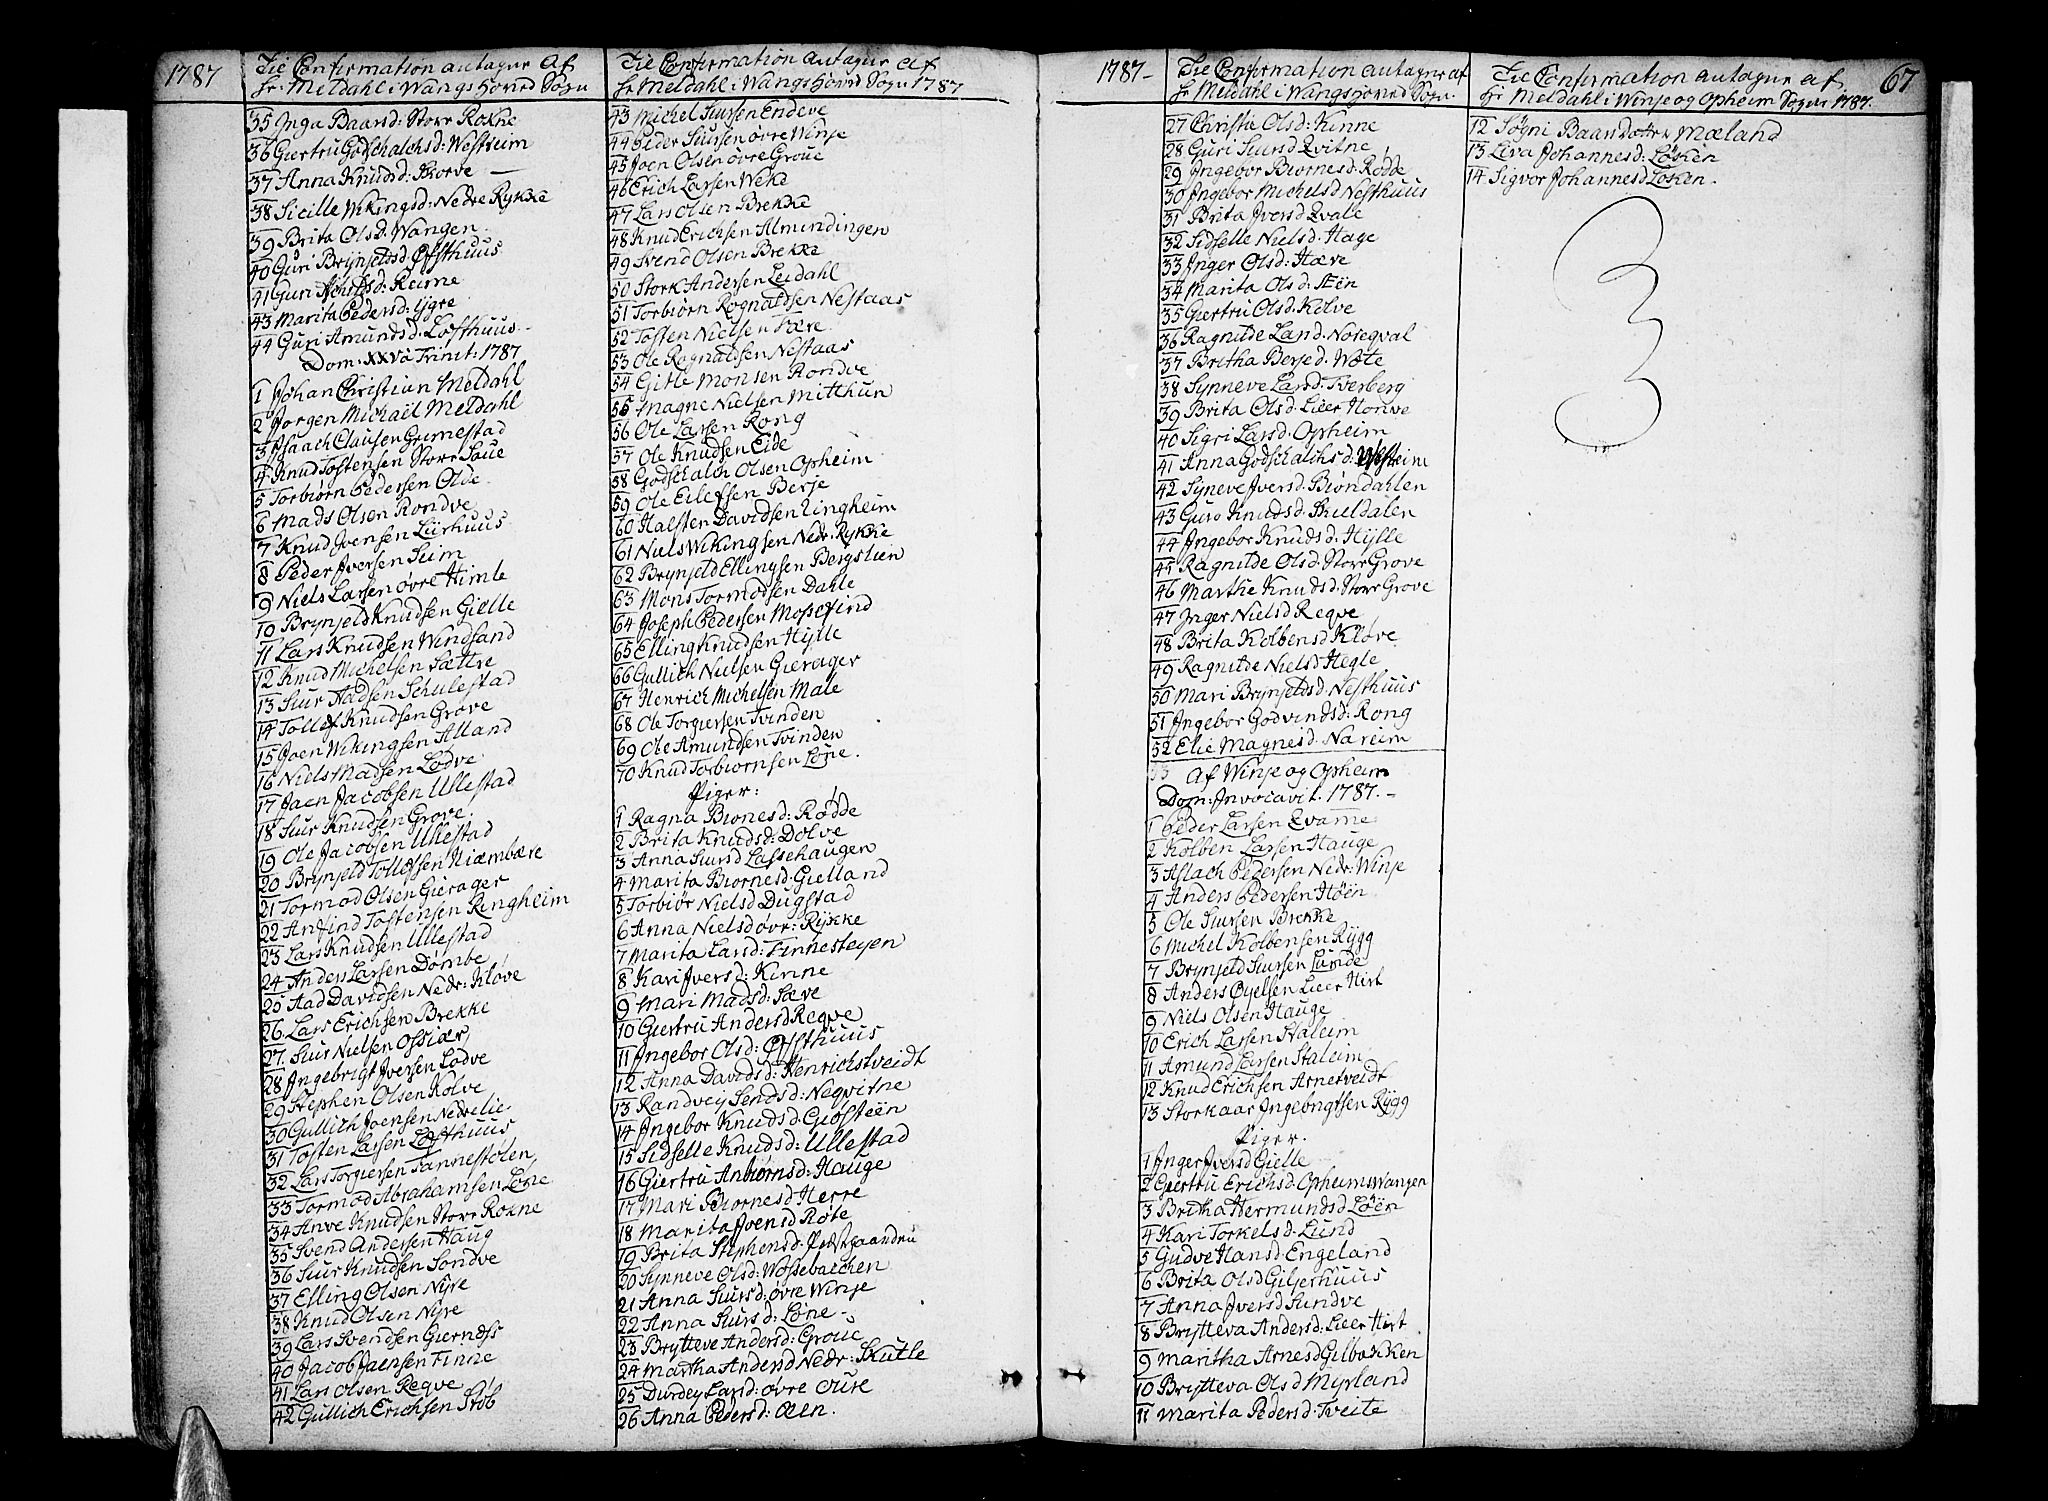 1787
Til Confirmation antagne Af
Hr: Meldahl i Wangs Hoved Sogn
35 Inga Baarsd: Store Rokne
36 Giertru Godschalchsd: Westreim
37 Anna Knudsd: Skorve
38 Sicille Wikingsd: Nedre Rykke
39 Brita Olsd: Wangen
40 Guri Brynjelsd: Øfsthuus
41 Guri Achsd: Reime
43 Marita Pedersd: Ygre
44 Guri Amundsd: Lofthuus
Dom: XXV à Trinit: 1787
1 Johan Christian Meldahl
2 Jørgen Michaël Meldahl
3 Isaach Clausen Grimestad
4 Knud Tostensen Store Saue
5 Torbiørn Pedersen Olde
6 Mads Olsen Rondve
7 Knud Joensen Liirhuus
8 Peder Iversen Seim
9 Niels Larsen øvre Himle
10 Brynjeld Knudsen Gielle
11 Lars Knudsen Windsand
12 Knud Michelsen Sættre
13 Siur Aadsen Schulestad
14 Tollef Knudsen Grove
15 Joen Wikingsen Alland
16 Niels Madsen Lødve
17 Jaen Jacobsen Ullestad
18 Siur Knudsen Grove
19 Ole Jacobsen Ullestad
20 Brynjeld Tollefsen Hiæmbære
21 Tormod Olsen Gierager
22 Anfind Tostensen Ringheim
23 Lars Knudsen Ullestad
24 Anders Larsen Dømbe
25 Aad Davidsen Nedr: Kløve
26 Lars Erichsen Brekke
27 Siur Nielsen Ossiær
28 Ingebrigt Iversen Lødve
29 Stephen Olsen Kolve
30 Gullich Joensen Nedre lie
31 Tosten Larsen Lofthuus
32 Lars Torgiersen Fannestølen
33 Tormod Abrahamsen Løne
34 Anve Knudsen Store Rokne
35 Svend Andersen Haug
36 Siur Knudsen Sondve
37 Elling Olsen Nyre
38 Knud Olsen Nyre
39 Lars Svendsen Giernes
40 Jacob Jaensen Finne
41 Lars Olsen Reqve
42 Gullich Erichsen Støb
Til Confirmation antagne af
Hr Meldahl i Wangs Hoved Sogn 1787
43 Michel Siursen Endeve
44 Peder Siursen øvre Winje
45 Joen Olsen øvre Groue
46 Erich Larsen Weke
47 Lars Olsen Brekke
48 Knud Erichsen Almindingen
49 Svend Olsen Brekke
50 Stork Andersen Leidahl
51 Torbiørn Rognaldsen Nestaas
52 Tosten Nielsen Fære
53 Ole Ragnaldsen Nestaas
54 Gitle Monsen Rondve
55 Magne Nielsen Mitthun
56 Ole Larsen Rong
57 Ole Knudsen Eide
58 Godschalch Olsen Opheim
59 Ole Eilefsen Berje
60 Halsten Davidsen Lingheim
61 Niels Wikingsen Nedr: Rykke
62 Brynjeld Ellingsen Bergslien
63 Mons Tormodsen Dahle
64 Joseph Pedersen Mossefind
65 Elling Knudsen Hylle
66 Gullich Nielsen Gierager
67 Henrich Michelsen Male
68 Ole Torgiersen Tvinden
69 Ole Amundsen Tvinden
70 Knud Torbiørnsen Løne.
Piger:
1 Ragna Biørnesd: Rødde
2 Brita Knudsd: Dolve
3 Anna Siursd Lassehaugen
4 Marita Biørnesd: Gielland
5 Torbiør Nielsd Dugstad
6 Anna Nielsd øvr: Rykke
7 Marita Larsd: Finnesteyen
8 Kari Iversd: Kinne
9 Mari Madsd: Sæve
10 Giertru Andersd Reqve
11 Ingebor Olsd: Øfsthuus
12 Anna Davidsd: Henrichstveidt
13 Randvej Sendsd: Neqvitne
14 Ingebor Knudsd: Giøsteen
15 Sidselle Knudsd: Ullestad
16 Giertru Anbiørnsd: Hauge
17 Mari Biornesd Herre
18 Marita Joensd Røte
19 Brita Stephensd: Præstgaarden
20 Synneve Olsd: Wossebacken
21 Anna Siursd: øvre Winje
22 Anna Siursd: Løne -
23 Brytteve Andersd: Groue
24 Martha Andersd Nedr: Skutle
25 Durdey Larsd: øvre Oure
26 Anna Pedersd: Øen.
1787-
Til Confirmation antagne af
Hr Meldahl i Wangs Hoved Sogn
27 Christie Olsd: Kinne
28 Guri Siursd Qvitne
29 Ingebor Biørnesd: Rødde
30 Ingebor Michelsd Nesthuus
31 Brita Iversd Qvale
32 Sidselle Nielsd. Hage
33 Inger Olsd: Hæve
34 Marita Olsd: Eën
35 Giertru Olsd: Kolve
36 Ragnilde Larsd: Noseqval
37 Britha Bersed: Wøte
38 Synneve Larsd: Tverberg
39 Brita Olsd: Lieer Honve
40 Sigri Larsd: Opheim
41 Anna Godschalchsd: Westreim
42 Syneve Iversd: Biøndahlen
43 Guro Knudsd: Skuldalen
44 Ingebor Knudsd: Hylle
45 Ragnilde Olsd: Store Grove
46 Marthe Knudsd: Store Grove
47 Inger Nielsd Reqve
48 Brita Kolbensd Kløve
49 Ragnilde Nielsd Hegle
50 Mari Brynjeldsd: Nesthuus
51 Ingebor Godvindsd: Rong
52 Elie Magnesd. Nareim
53
Af Winje og Opheim
Dom: Invocavit. 1787.-
1 Peder Larsen Qvarme
2 Kolben Larsen Hauge
3 Aslach Pedersen Nedr: Winje
4 Anders Pedersen Høen
5 Ole Siursen Brekke
6 Michel Kolbensen Rygg
7 Brynjeld Siursen Lunde
8 Anders Øyelsen Lieer Hirt
9 Niels Olsen Hauge
10 Erich Larsen Staleim
11 Amund Larsen Staleim
12 Knud Erichsen Arnetveidt
13 Storkaar Ingebrigtsen Rygg
Piger.
1 Inger Iversd Gielle
2 Giertru Erichsd: Opheimswangen
3 Britha Hermundsd Løen
4 Kari Torkelsd: Lund
5 Gudve Hansd Engeland
6 Brita Olsd Giljerhuus
7 Anna Iversd Sundve
8 Brytteva Andersd: Lieer Hirt
9 Maritha Arnesd Gilbakken
10 Brytteva Olsd Myrland
11 Marita Pedersd: Tveite
Til Confirmation antagne af
Hr Meldahl i Winje og Opheim Sogne 1787.
67
12 Søgni Baarsdotter Mæland
13 Liva Johannesd: Løsken
14 Sigvor Johannesd Løken.